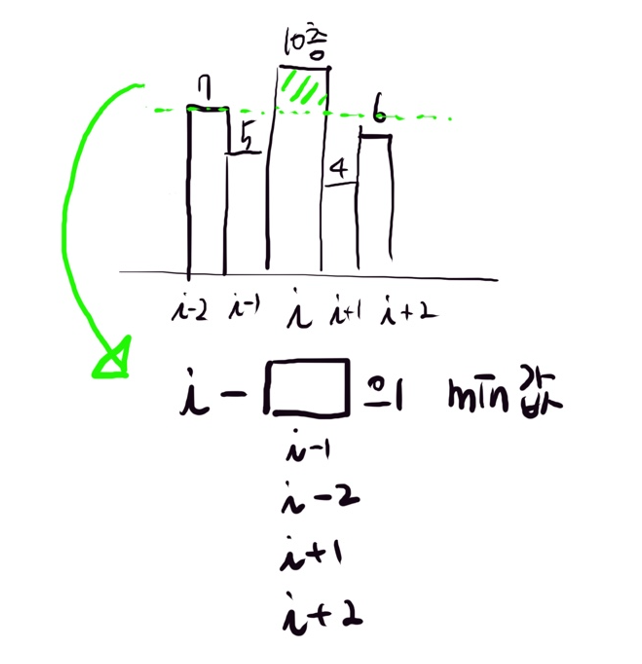 10층
7
6
5
4
i-2 i-1 i i+1 i+2
i - □ 의 min 값
i-1
i-2
i+1
i+2